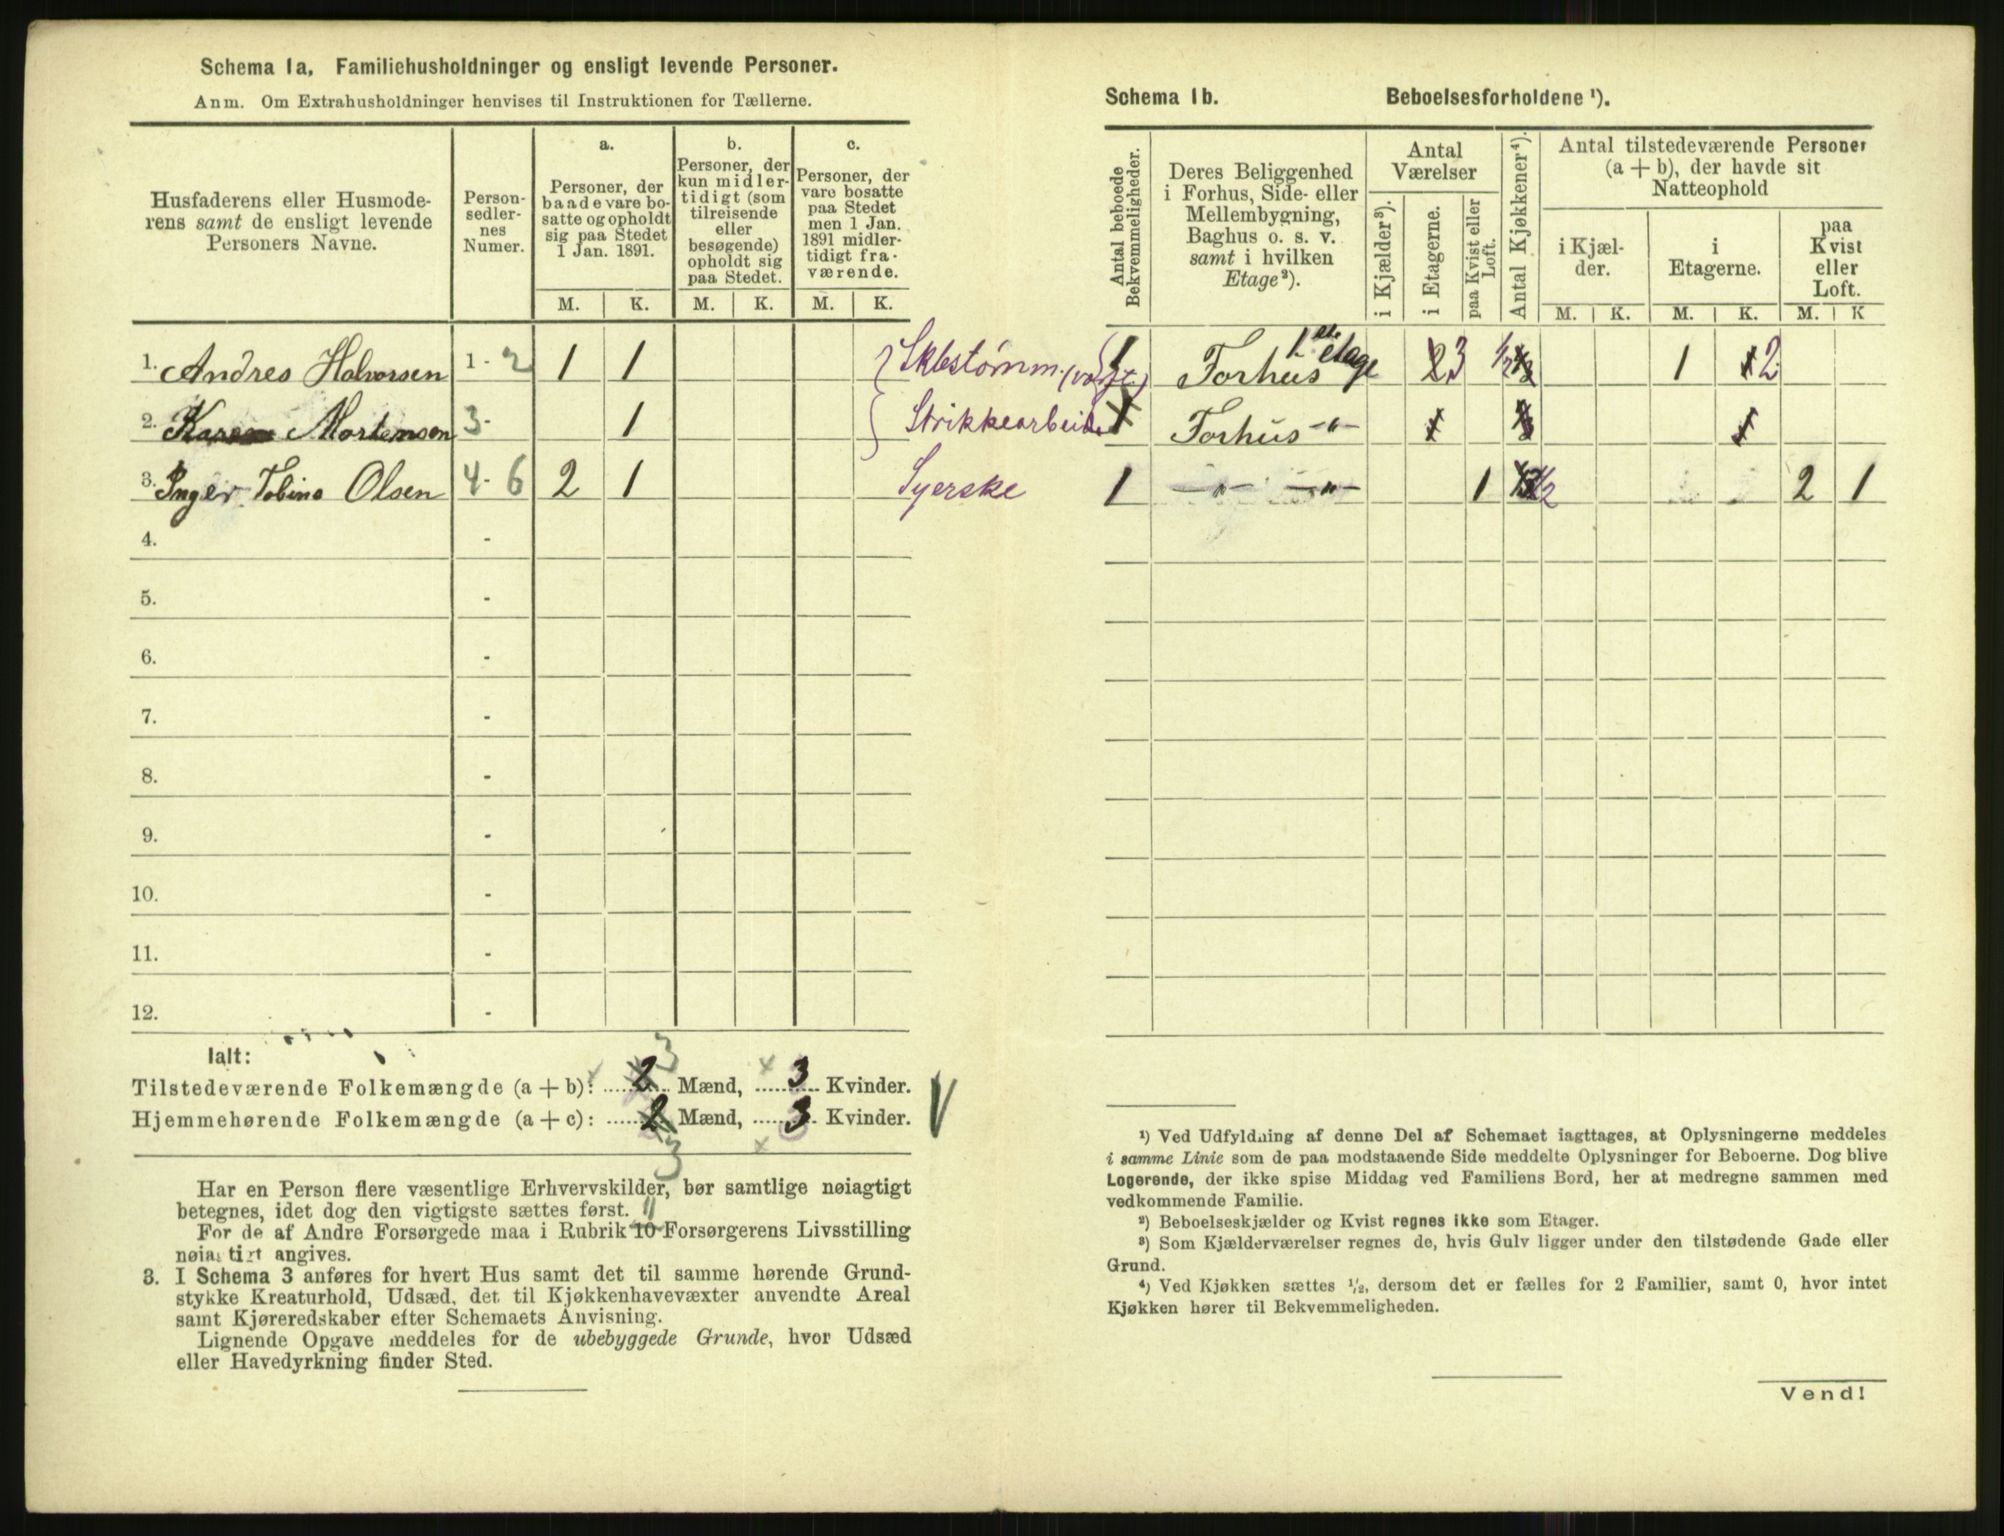 Schema 1a, Familiehusholdninger og ensligt levende Personer.
Anm. Om Extrahusholdninger henvises til Instruktionen for Tællerne.
Husfaderens eller Husmoderens samt de ensligt levende Personers Navne.
Person-sedlernes Numer.
a. Personer, der baade vare bosatte og opholdt sig paa Stedet 1 Jan. 1891.
b. Personer, der kun midlertidigt (som tilreisende eller besøgende) opholdt sig paa Stedet.
c. Personer, der vare bosatte paa Stedet men 1 Jan. 1891 midlertidigt fraværende.
M. K. M. K. M. K.
1. Andres Halvorsen 1-2 1 1 Skibstømm.
2. Karen Mortensen 3- 1 Strikkearbeide
3. Inger Tobine Olsen 4-6 2 1 Syerske
4. -
5. -
6. -
7. -
8. -
9. -
10. -
11. -
12. -
Ialt:
3
Tilstedeværende Folkemængde (a + b): 2 Mænd, 3 Kvinder.
Hjemmehørende Folkemængde (a + c): 2 Mænd, 3 Kvinder.
3
Har en Person flere væsentlige Erhvervskilder, bør samtlige nøiagtigt
betegnes, idet dog den vigtigste sættes først. 11
For de af Andre Forsørgede maa i Rubrik 10 Forsørgerens Livsstilling
nøiagtigt angives.
3. I Schema 3 anføres for hvert Hus samt det til samme hørende Grund-
stykke Kreaturhold, Udsæd, det til Kjøkkenhavevæxter anvendte Areal
samt Kjøreredskaber efter Schemaets Anvisning.
Lignende Opgave meddeles for de ubebyggede Grunde, hvor Udsæd
eller Havedyrkning finder Sted.
Schema 1b. Beboelsesforholdene ¹).
Antal beboede Bekvemmeligheder.
Deres Beliggenhed i Forhus, Side- eller Mellembygning, Baghus o. s. v. samt i hvilken Etage²).
Antal Værelser
i Kjælder³).
i Etagerne.
paa Kvist eller Loft.
Antal Kjøkkener⁴).
Antal tilstedeværende Personer (a + b), der havde sit Natteophold
i Kjælder.
i Etagerne.
paa Kvist eller Loft.
M. K. M. K. M. K
1 Forhus 1ste etage 2 3 1/2 1 1 2
1 Forhus -"- 1 1
1 -"- -"- 1 1/2 2 1
¹) Ved Udfyldning af denne Del af Schemaet iagttages, at Oplysningerne meddeles
i samme Linie som de paa modstaaende Side meddelte Oplysninger for Beboerne. Dog blive
Logerende, der ikke spise Middag ved Familiens Bord, her at medregne sammen med
vedkommende Familie.
²) Beboelseskjælder og Kvist regnes ikke som Etager.
³) Som Kjælderværelser regnes de, hvis Gulv ligger under den tilstødende Gade eller
Grund.
⁴) Ved Kjøkken sættes ½, dersom det er fælles for 2 Familier, samt 0, hvor intet
Kjøkken hører til Bekvemmeligheden.
Vend!